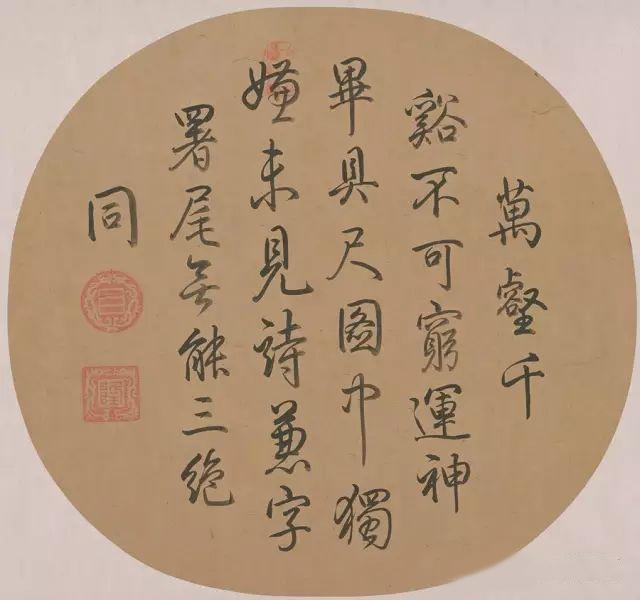 萬壑千
谿不可窮運神
畢具尺圖中獨
嫌未見詩兼字
署尾無能三絶
同